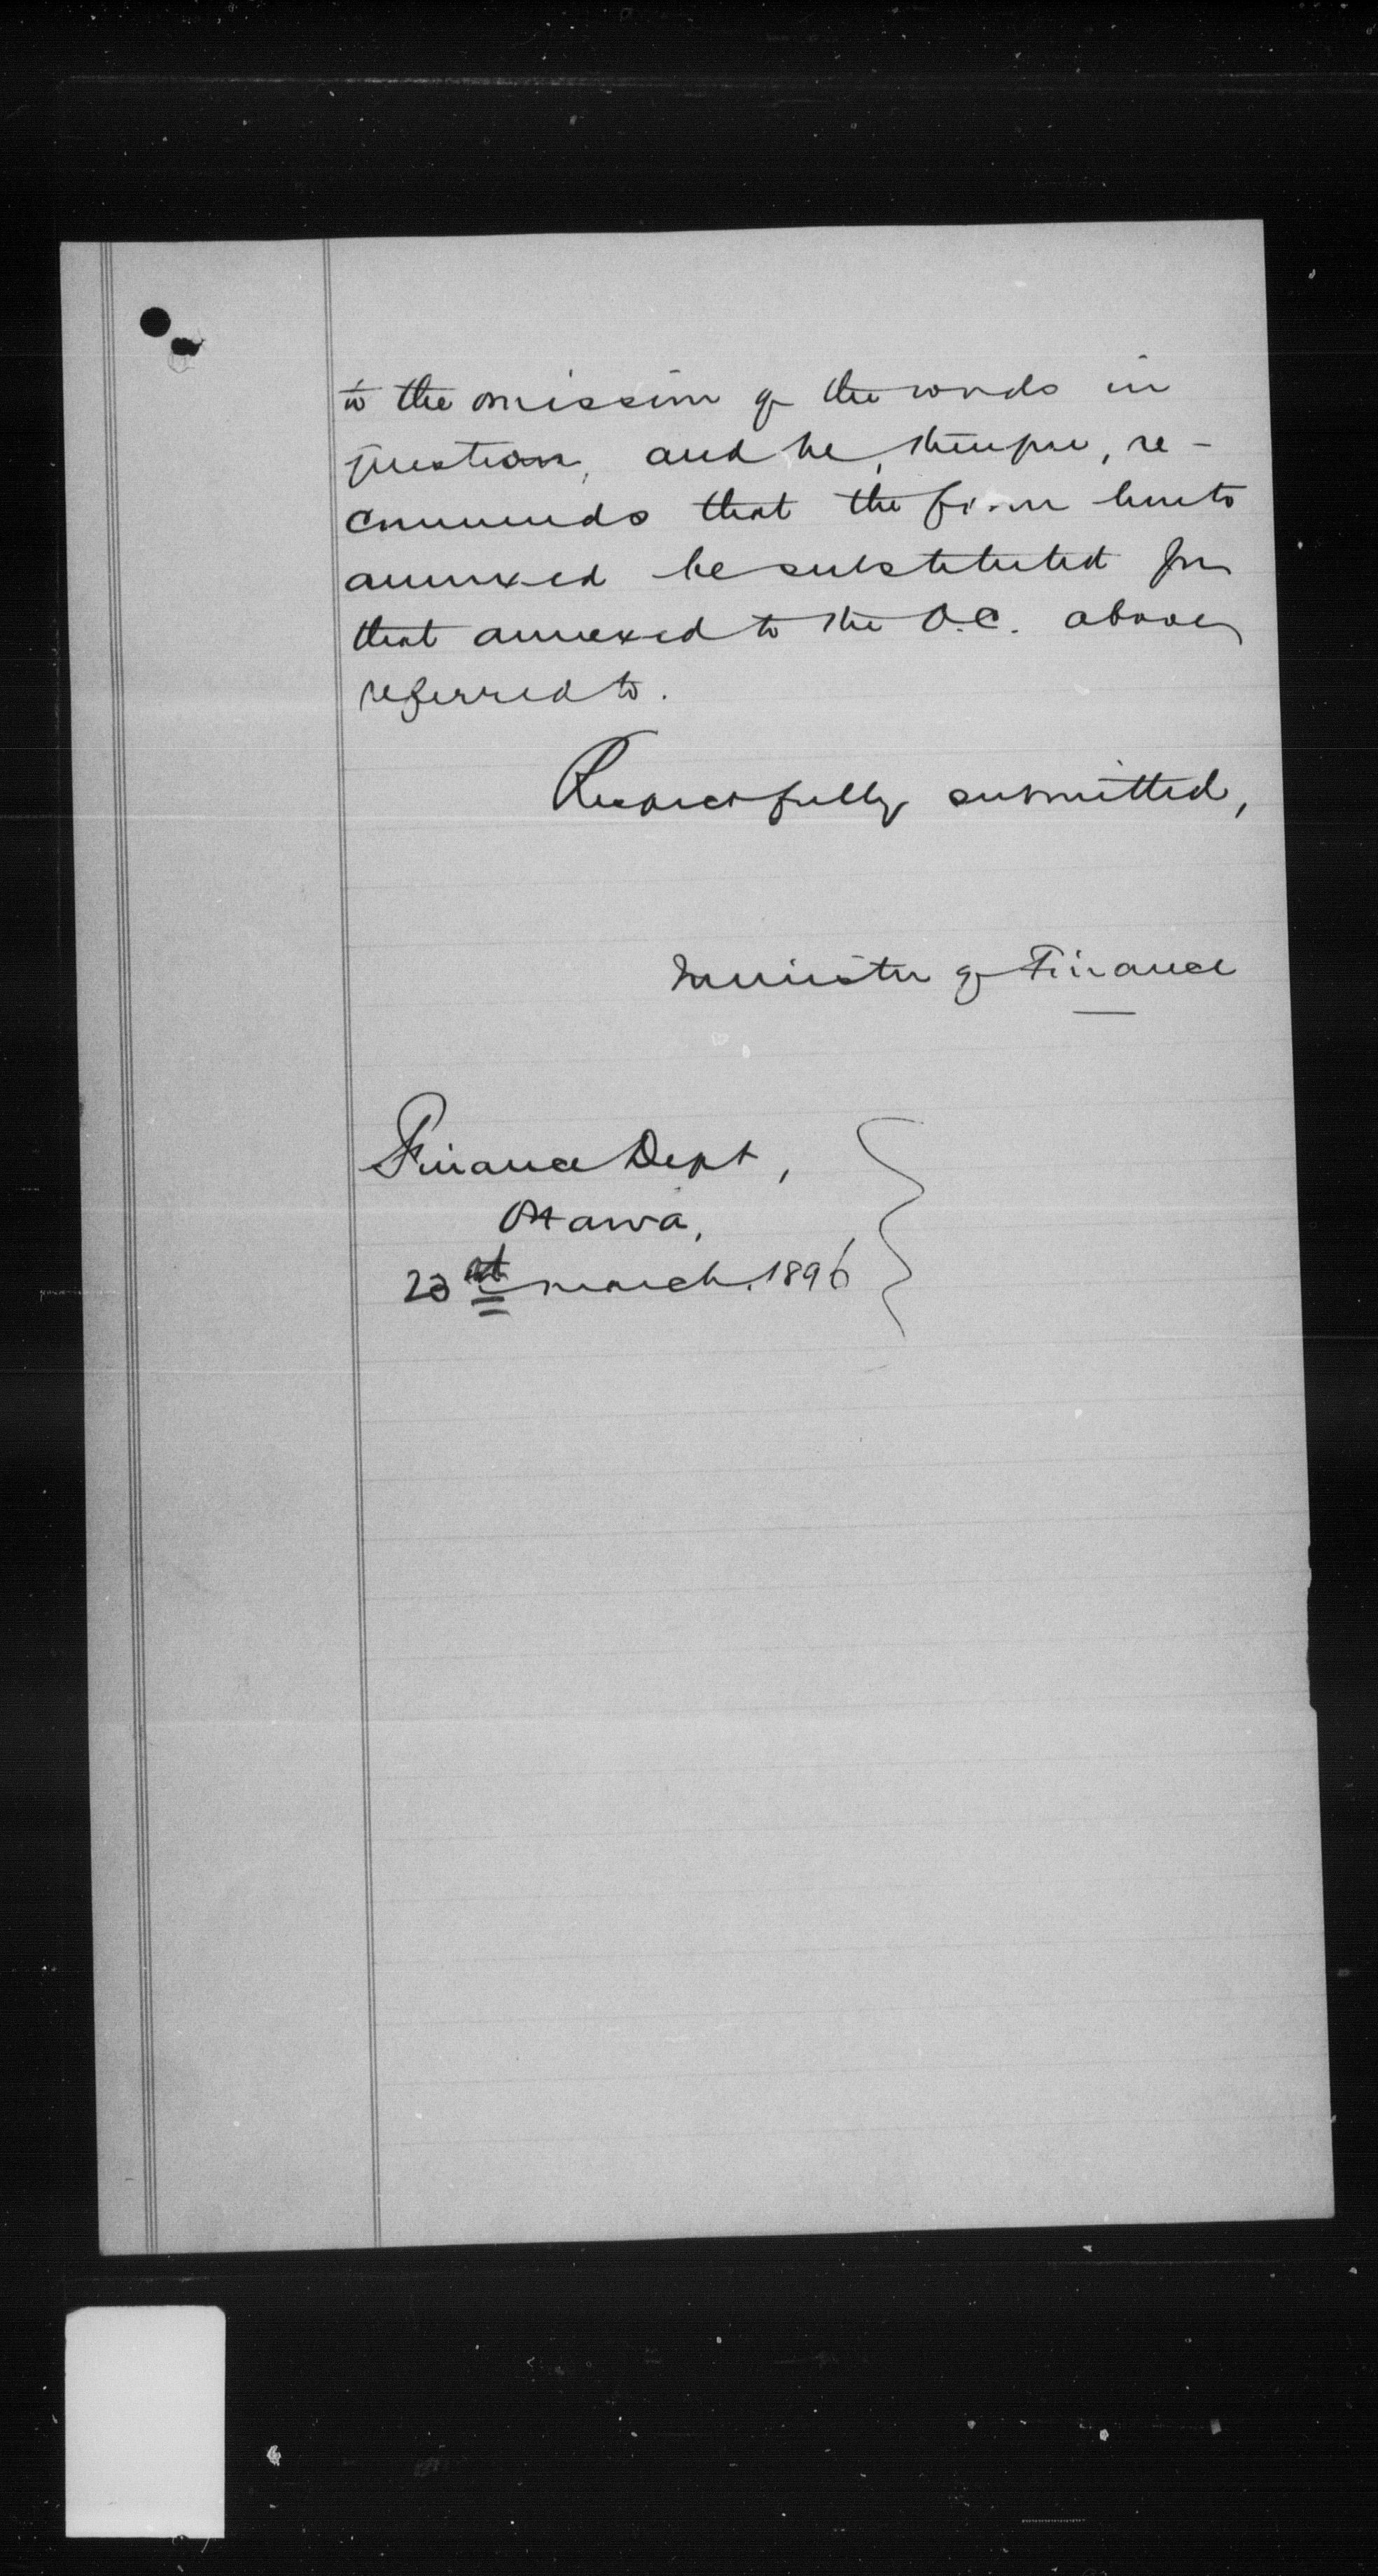 to the omission of the words in
question, and he, therefore, re-
commends that the form hereto
annexed be substituted for
that annexed to the O.C. above
referred to.
Respectfully submitted,
Minister of Finance
Finance Dept,
Ottawa,
March. 1896